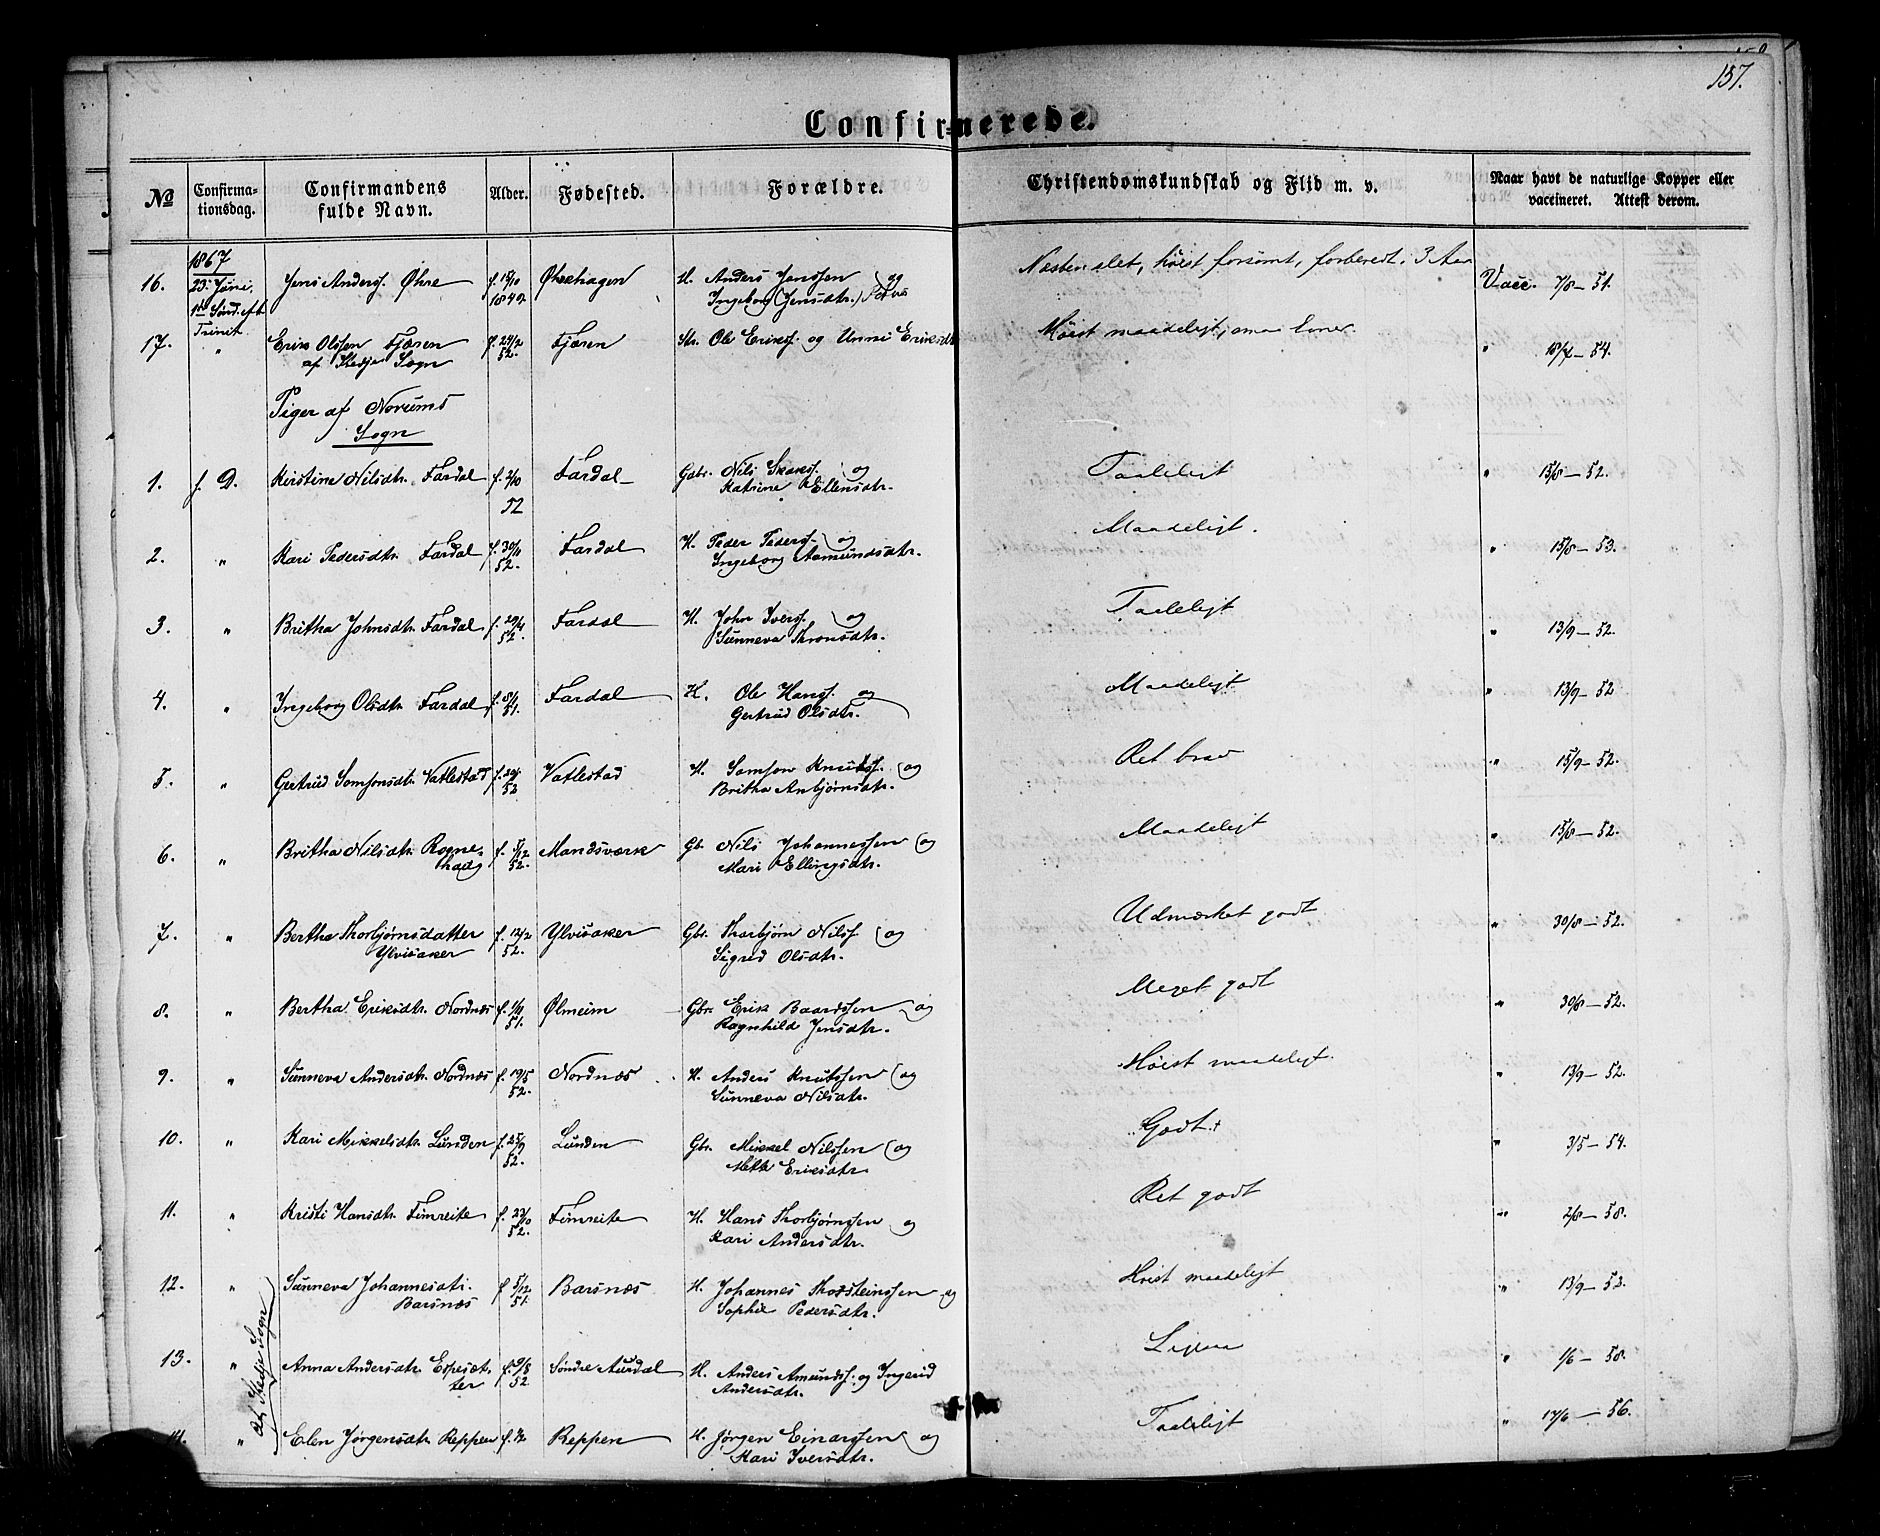 157.
Confirmerede.
No
Confirmationsdag.
Confirmandens fulde Navn.
Alder.
Fødested.
Forældre.
Christendomskundskab og Flid m. v.
Naar havt de naturlige Kopper eller vaccineret. Attest derom.
1867
16. 23. Juni, 1ste Sønd. eft. Trinit. Jens Anders. Øhre f. 1849. Øhrehagen H. Anders Janssen og
Ingeborg Jensdtr. Næsten slet, høist forsømt, forberedt i 3 Aar Vacc. 7/8 – 51.
17. " Erik Olssen Fjæren f. 24/2 52. Fjæren Str. Ole Erikss. og Unni Eriksdt Høist maadeligt, smaa Evner. " 18/7 – 54.
af Stedje Sogn
Piger af Norums
Sogn
1. f. D. Kirstine Nilsdtr. Fardal f. 2/10 52 Fardal Gbr. Nils og
Katrine Ellensdtr. Taaleligt " 15/8 – 52.
2. " Kari Pedersdtr. Fardal f. 30/11 52. Fardal H. Peder Peders. og
Ingeborg Aamundsdtr. Maadeligt. " 15/8 – 53.
3. " Britha Johnsdtr. Fardal f. 29/4 52. Fardal H. John Ivers. og
Sunneva Thronsdtr. Taaleligt " 13/9 – 52.
4. " Ingeborg Olsdtr. Fardal f. 8/1 51. Fardal H. Ole Hanss. og
Gertrud Olsdtr. Maadeligt " 13/9 – 52
5. " Gertrud Samsonsdt. Vatlestad f. 52 Vatlestad H. Samson Knuts. og
Britha Anbjørnsdtr. Ret brav " 15/9 – 52.
6. " Britha Nilsdtr. Rognehaug f. 5/12 52. Mandsværk Gb. Nils Johannessen og
Mari Ellingsdtr. Maadeligt " 15/8 – 52.
7. " Bertha Thorbjørnsdatter
Ylvisaker f. 12/2 52. Ylvisaker Gbr. Thorbjørn Nilss og
Sigrid Olsdtr. Udmærket godt " 30/8 – 52.
8. " Bertha Eriksdtr. Nordnæs f. 1/11 51. Ølmeim Gbr. Erik Baardssen og
Ragnhild Jensdtr. Meget godt " 30/8 – 52.
9. " Sunneva Andersdtr. Nordnæs f. 19/5 52. Nordnæs H. Anders Knutssen og
Sunneva Nilsdtr. Høist maadeligt " 13/9 – 52.
10. " Kari Mikkelsdtr. Lunden f. 25/9 52. Lunden Gbr. Mikkel Nilssen og
Eriksdtr. Godt " 3/5 – 54.
11. " Kristi Hansdtr. Fimreite f. 23/10 52. Fimreite H. Hans Thorbjørnssen og
Kari Andersdtr. Ret godt " 2/8 – 58.
12. " Sunneva Johannesdtr.
Barsnæs f. 5/12 51. Barsnæs H. Johannes Thorsteinssen og
Sophie Pedersdtr. Høist maadeligt " 13/9 – 52.
Af Stedje Sogn
13. " Anna Andersdtr. Espesætter f. 9/8 52 Søndre Aurdal H. Anders Amunds. og Ingerid
Andersdtr. Ligesaa " 1/6 – 58.
14. " Elen Jørgensdtr. Reppen f. Reppen H. Jørgen Einarssen og
Kari Iversdtr. Taaleligt " 17/6 – 56.